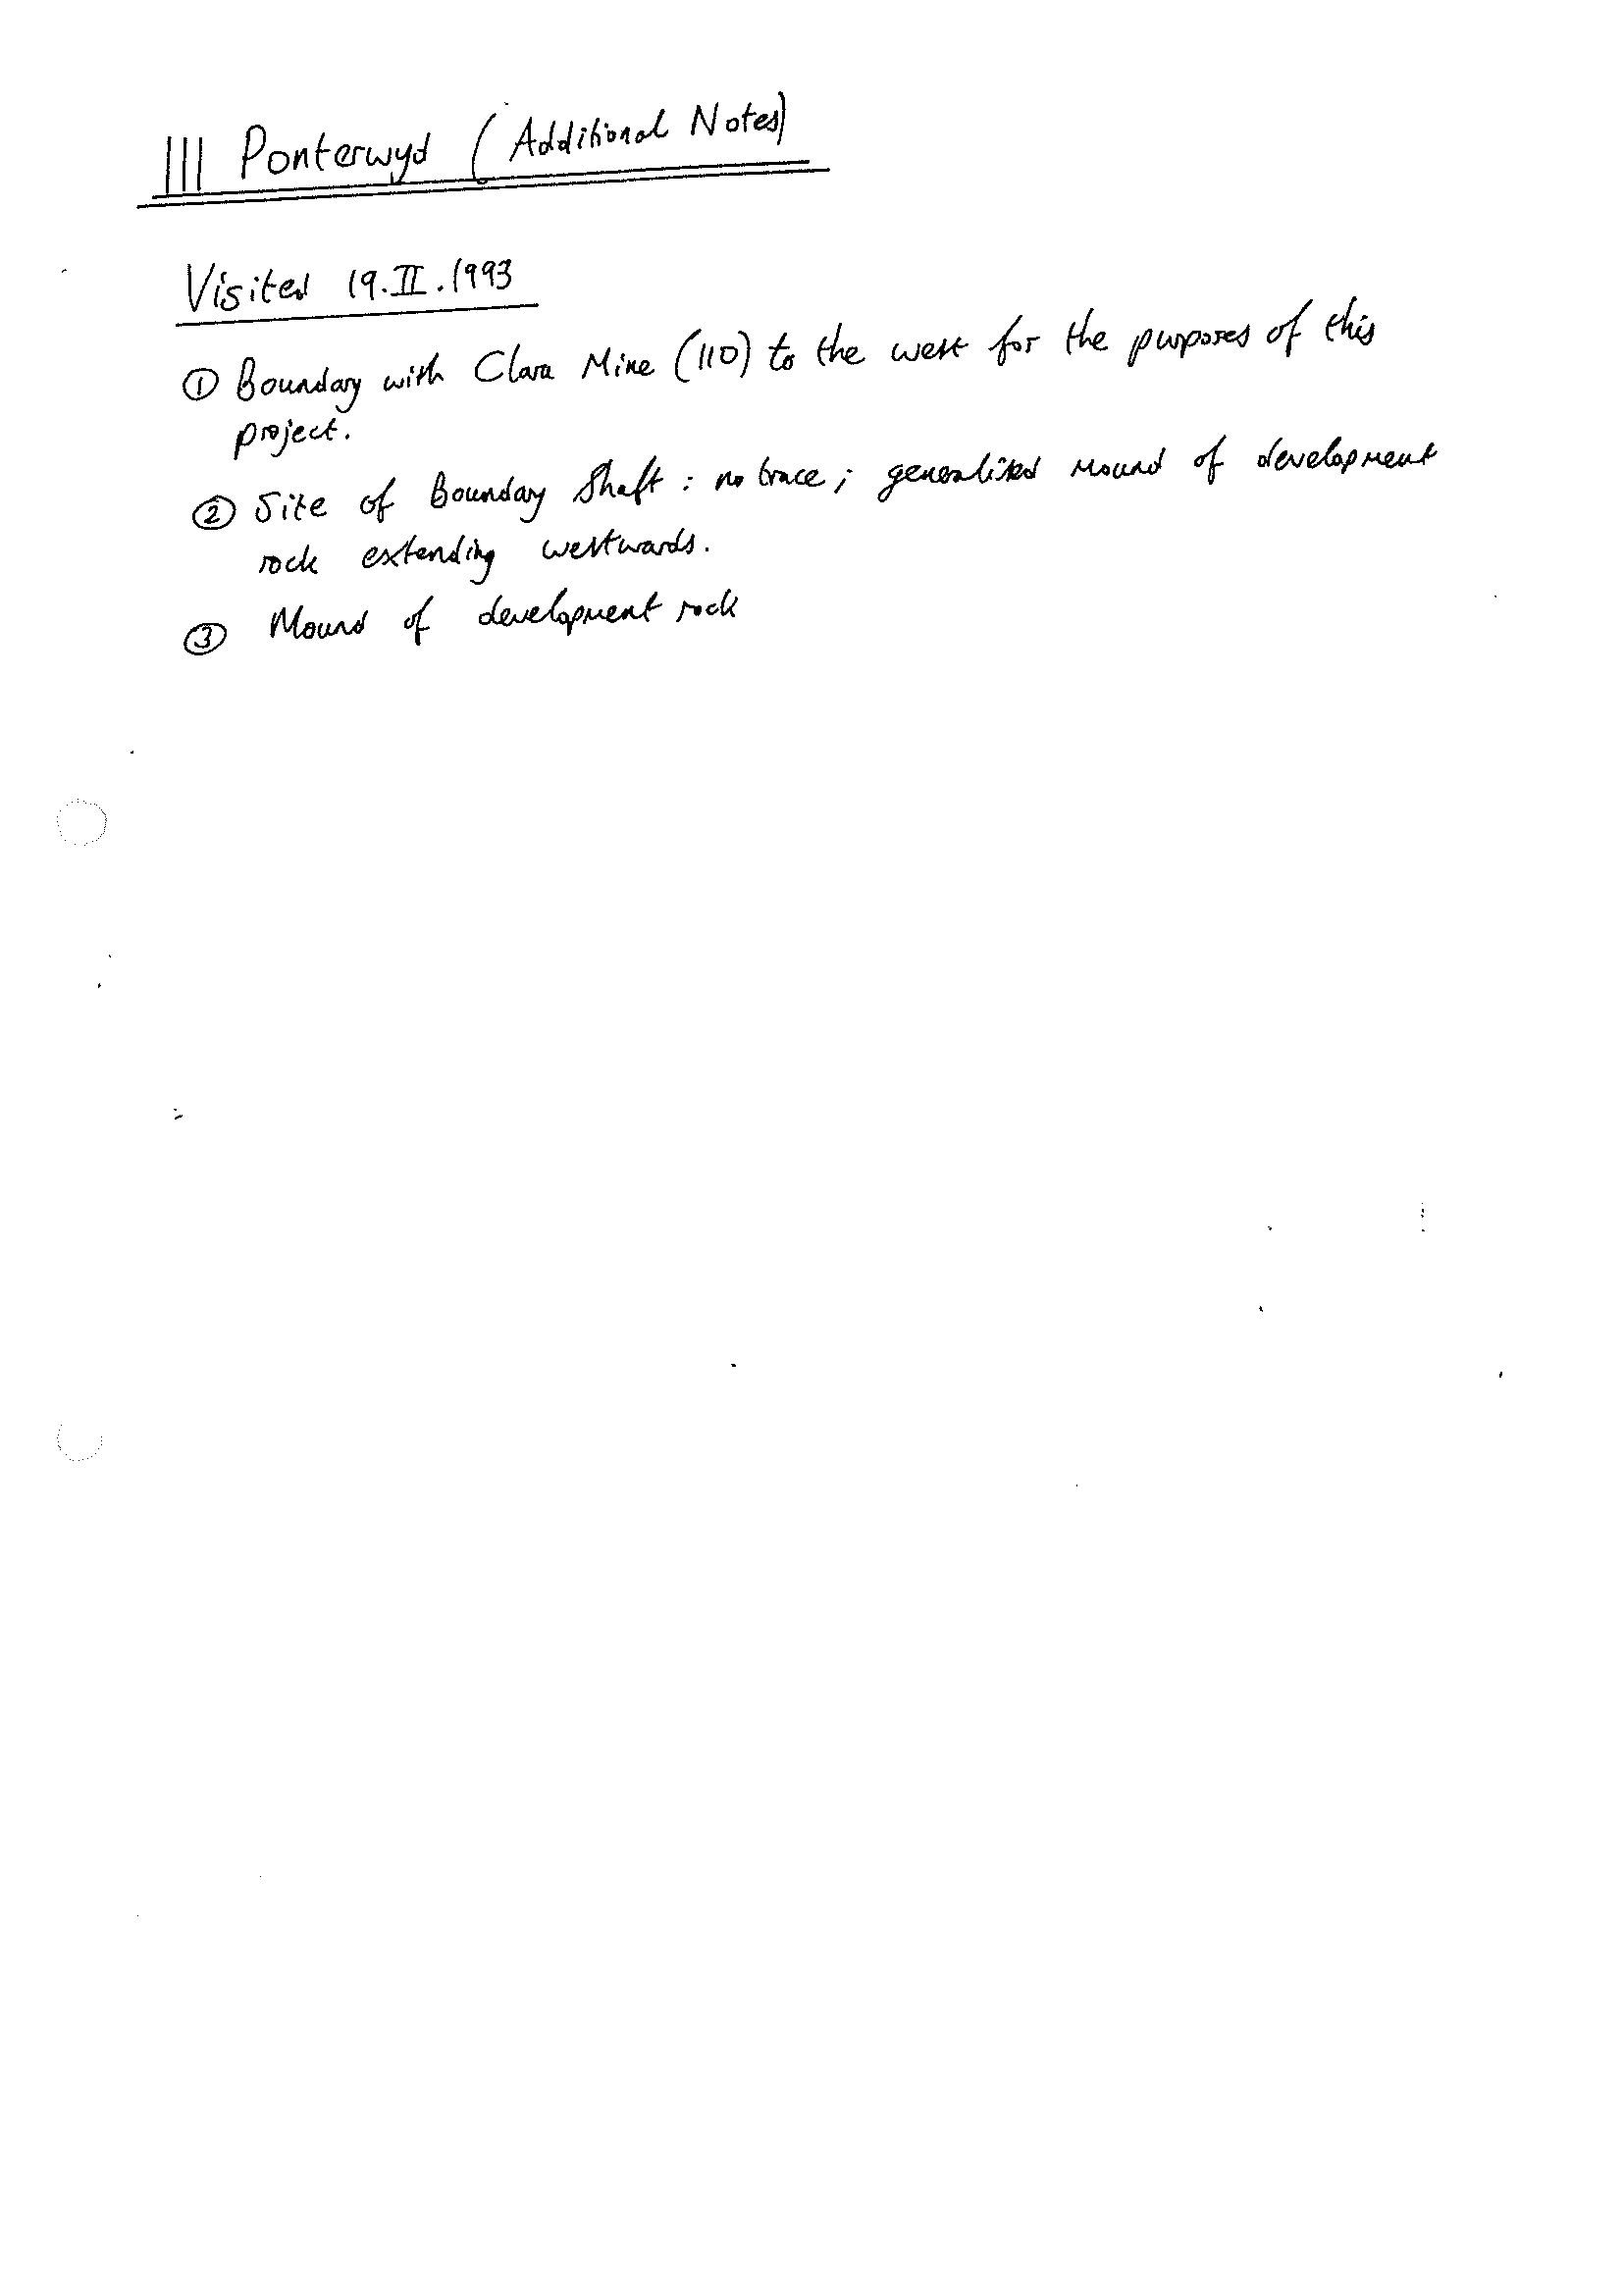 111 Ponterwyd (Additional Notes)
Visited 19.II.1993
① Boundary with Clara Mine (110) to the west for the purposes of this
project.
② Site of Boundary Shaft : no trace ; generalised mound of development
rock extending westwards.
③ Mound of development rock